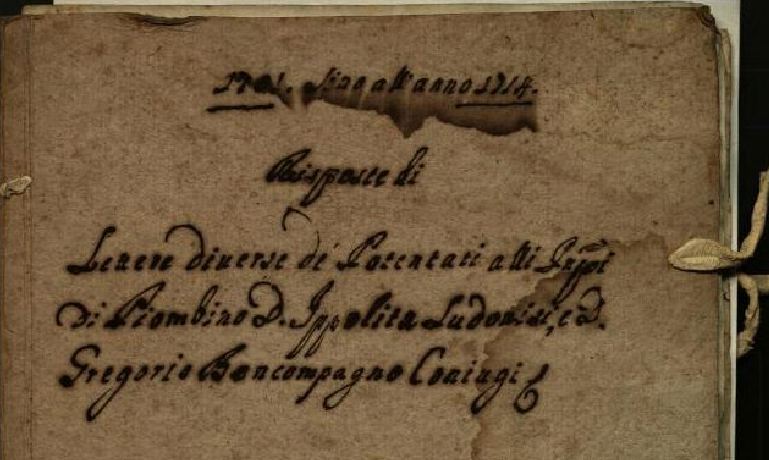 1701. Sino all'anno 1714.
Risposte di
Lettere diverse de' Potentati alli Prppi
Di Piombino D. Ippolita Ludovisi, e D.
Gregorio Boncompagno Coniugi